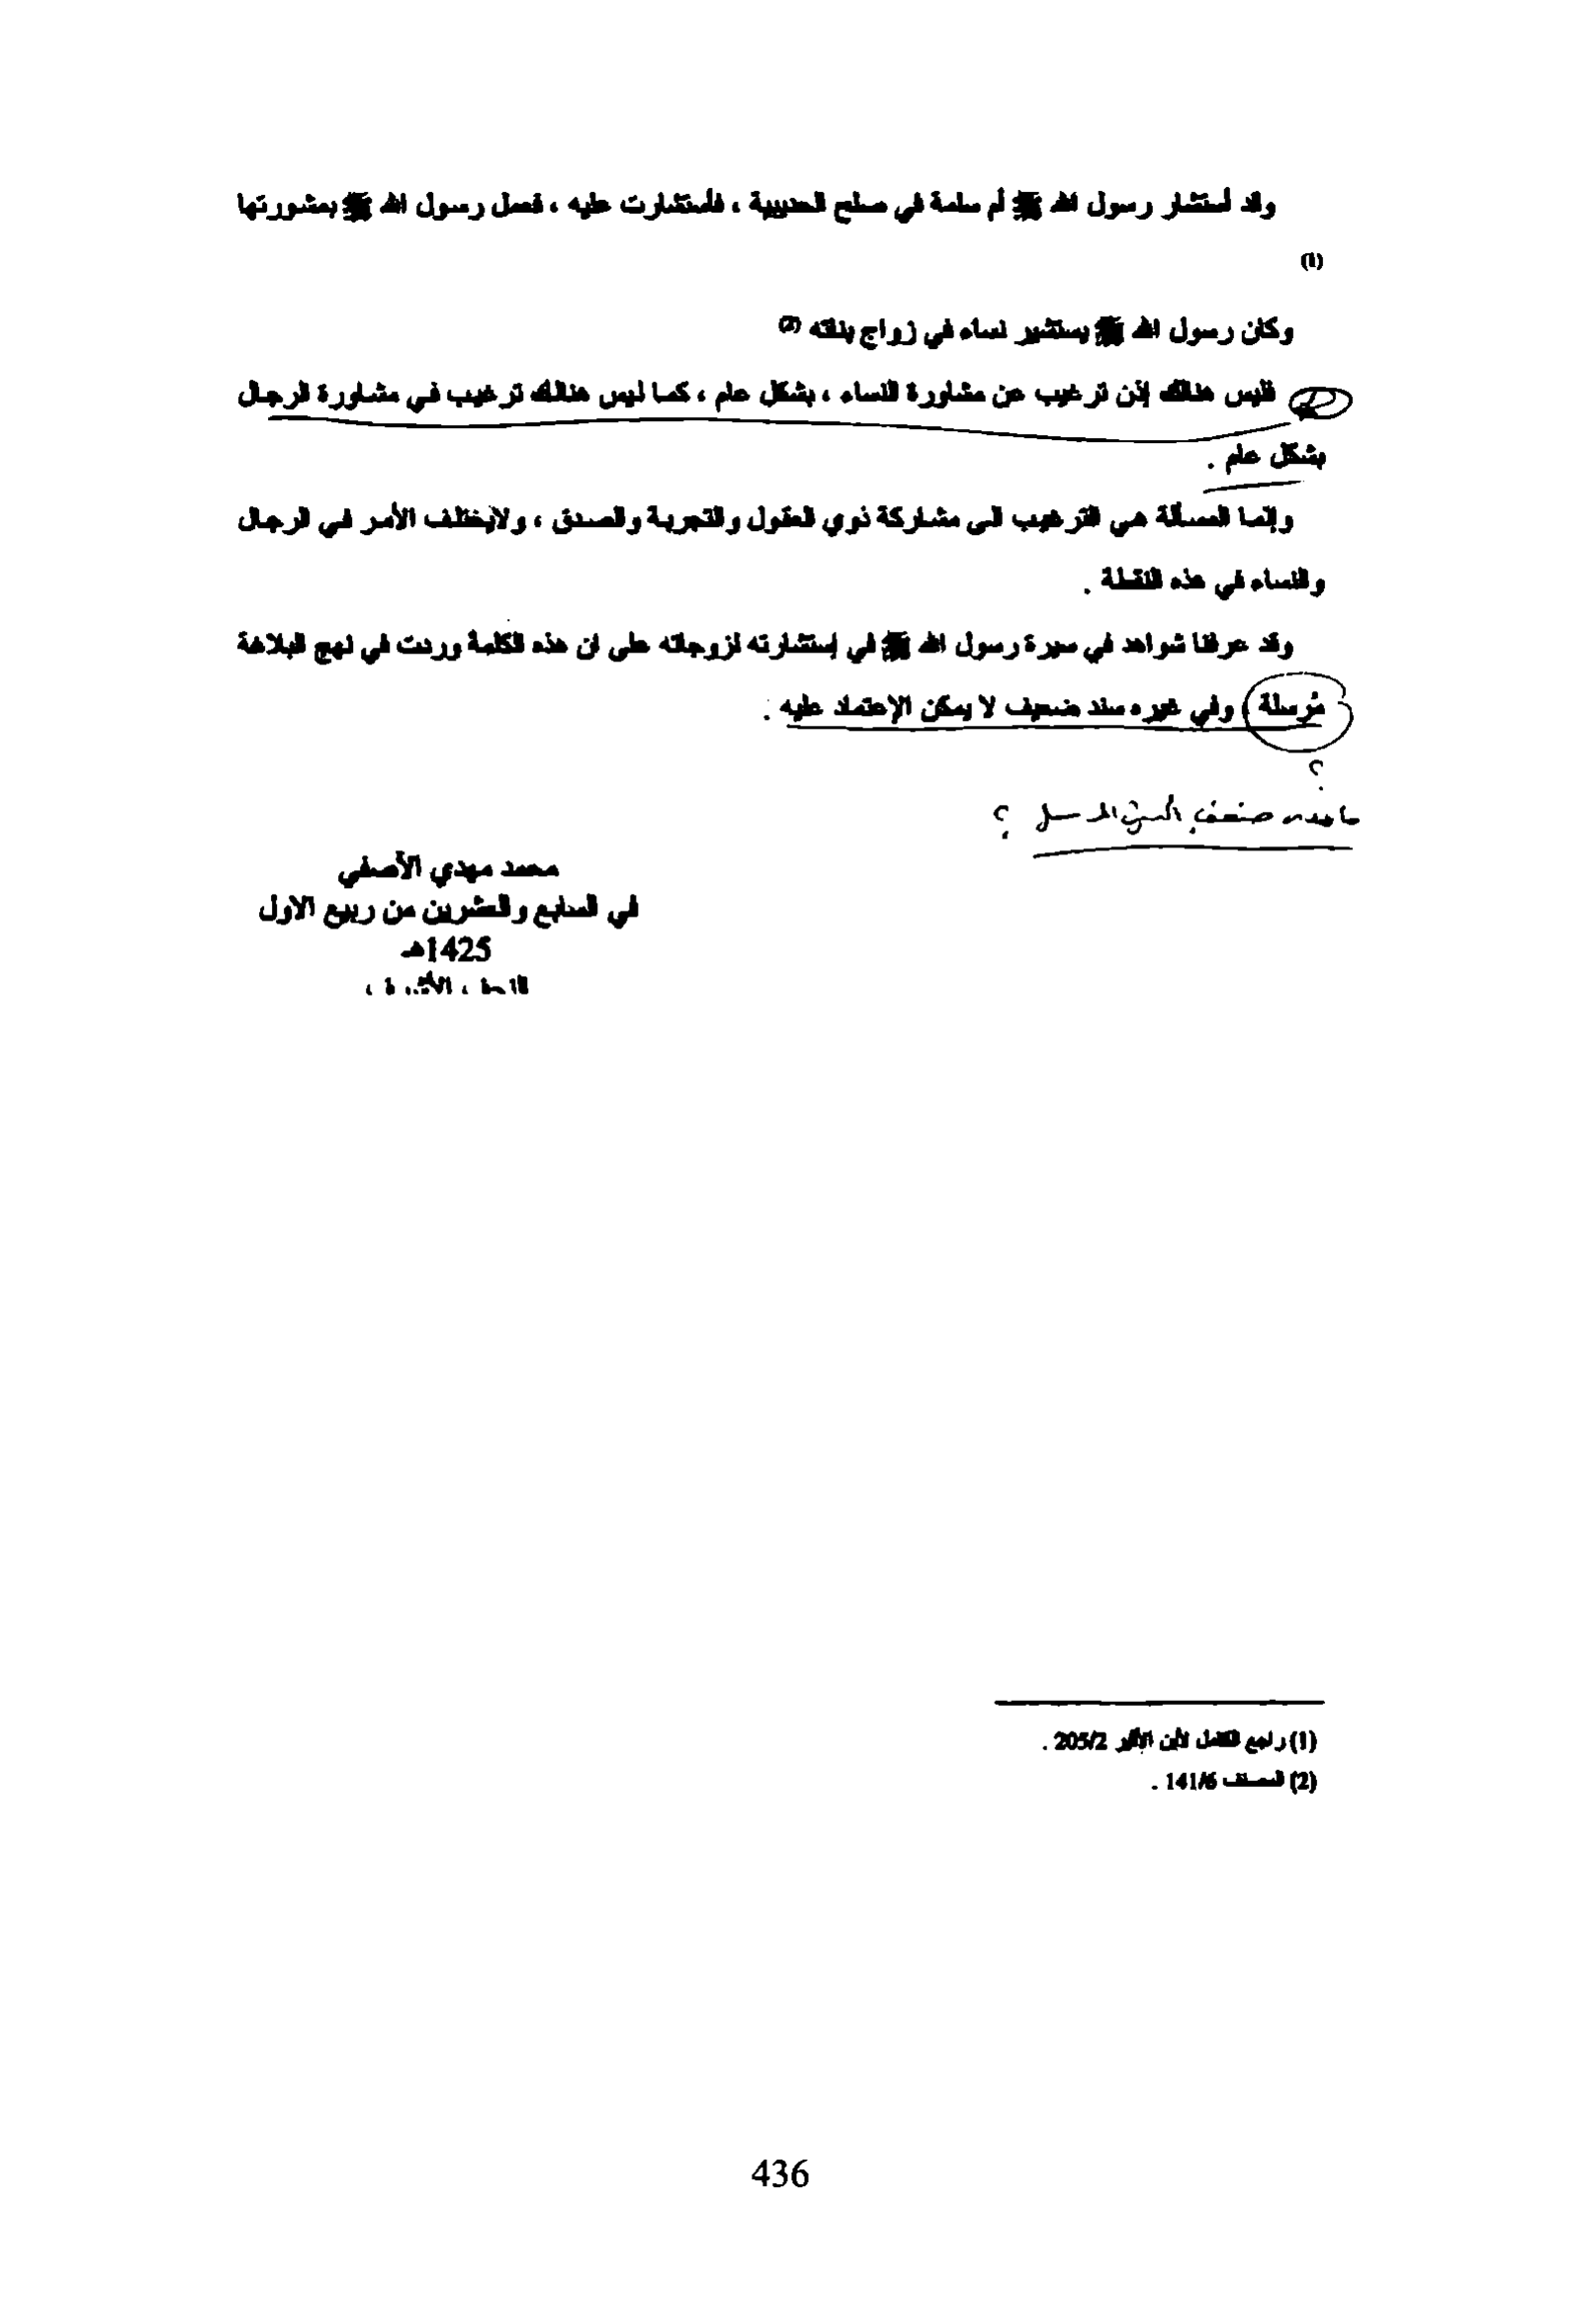 وقد أستشار رسول الله ﷺ أم سلمة في صلح الحديبية ، فأستشارت عليه ، فعمل رسول الله ﷺ بمشورتها
(1)
وكان رسول الله ﷺ يستشير نساء في زواج بناته (2)
فليس هنالك إذن ترغيب عن مشاورة النساء ، بشكل عام ، كما ليس هنالك ترغيب في مشاورة الرجال
بشكل عام .
وإنما المسألة هي الترغيب الى مشاركة ذوي العقول والتجربة والصدق ، ولايختلف الأمر في الرجال
والنساء في هذه النقطة .
وقد عرفنا شواهد في سيرة رسول الله ﷺ في إستشارته لزوجاته على ان هذه الكلمة وردت في نهج البلاغة
مُرسلة وفي غيره سند ضعيف لا يمكن الإعتماد عليه .
؟
؟
محمد مهدي الآصفي
في السابع والعشرين من ربيع الاول
1425هـ
(1) راجع الكامل لأبن الأثير 205/2 .
(2) المصنف 141/6 .
436